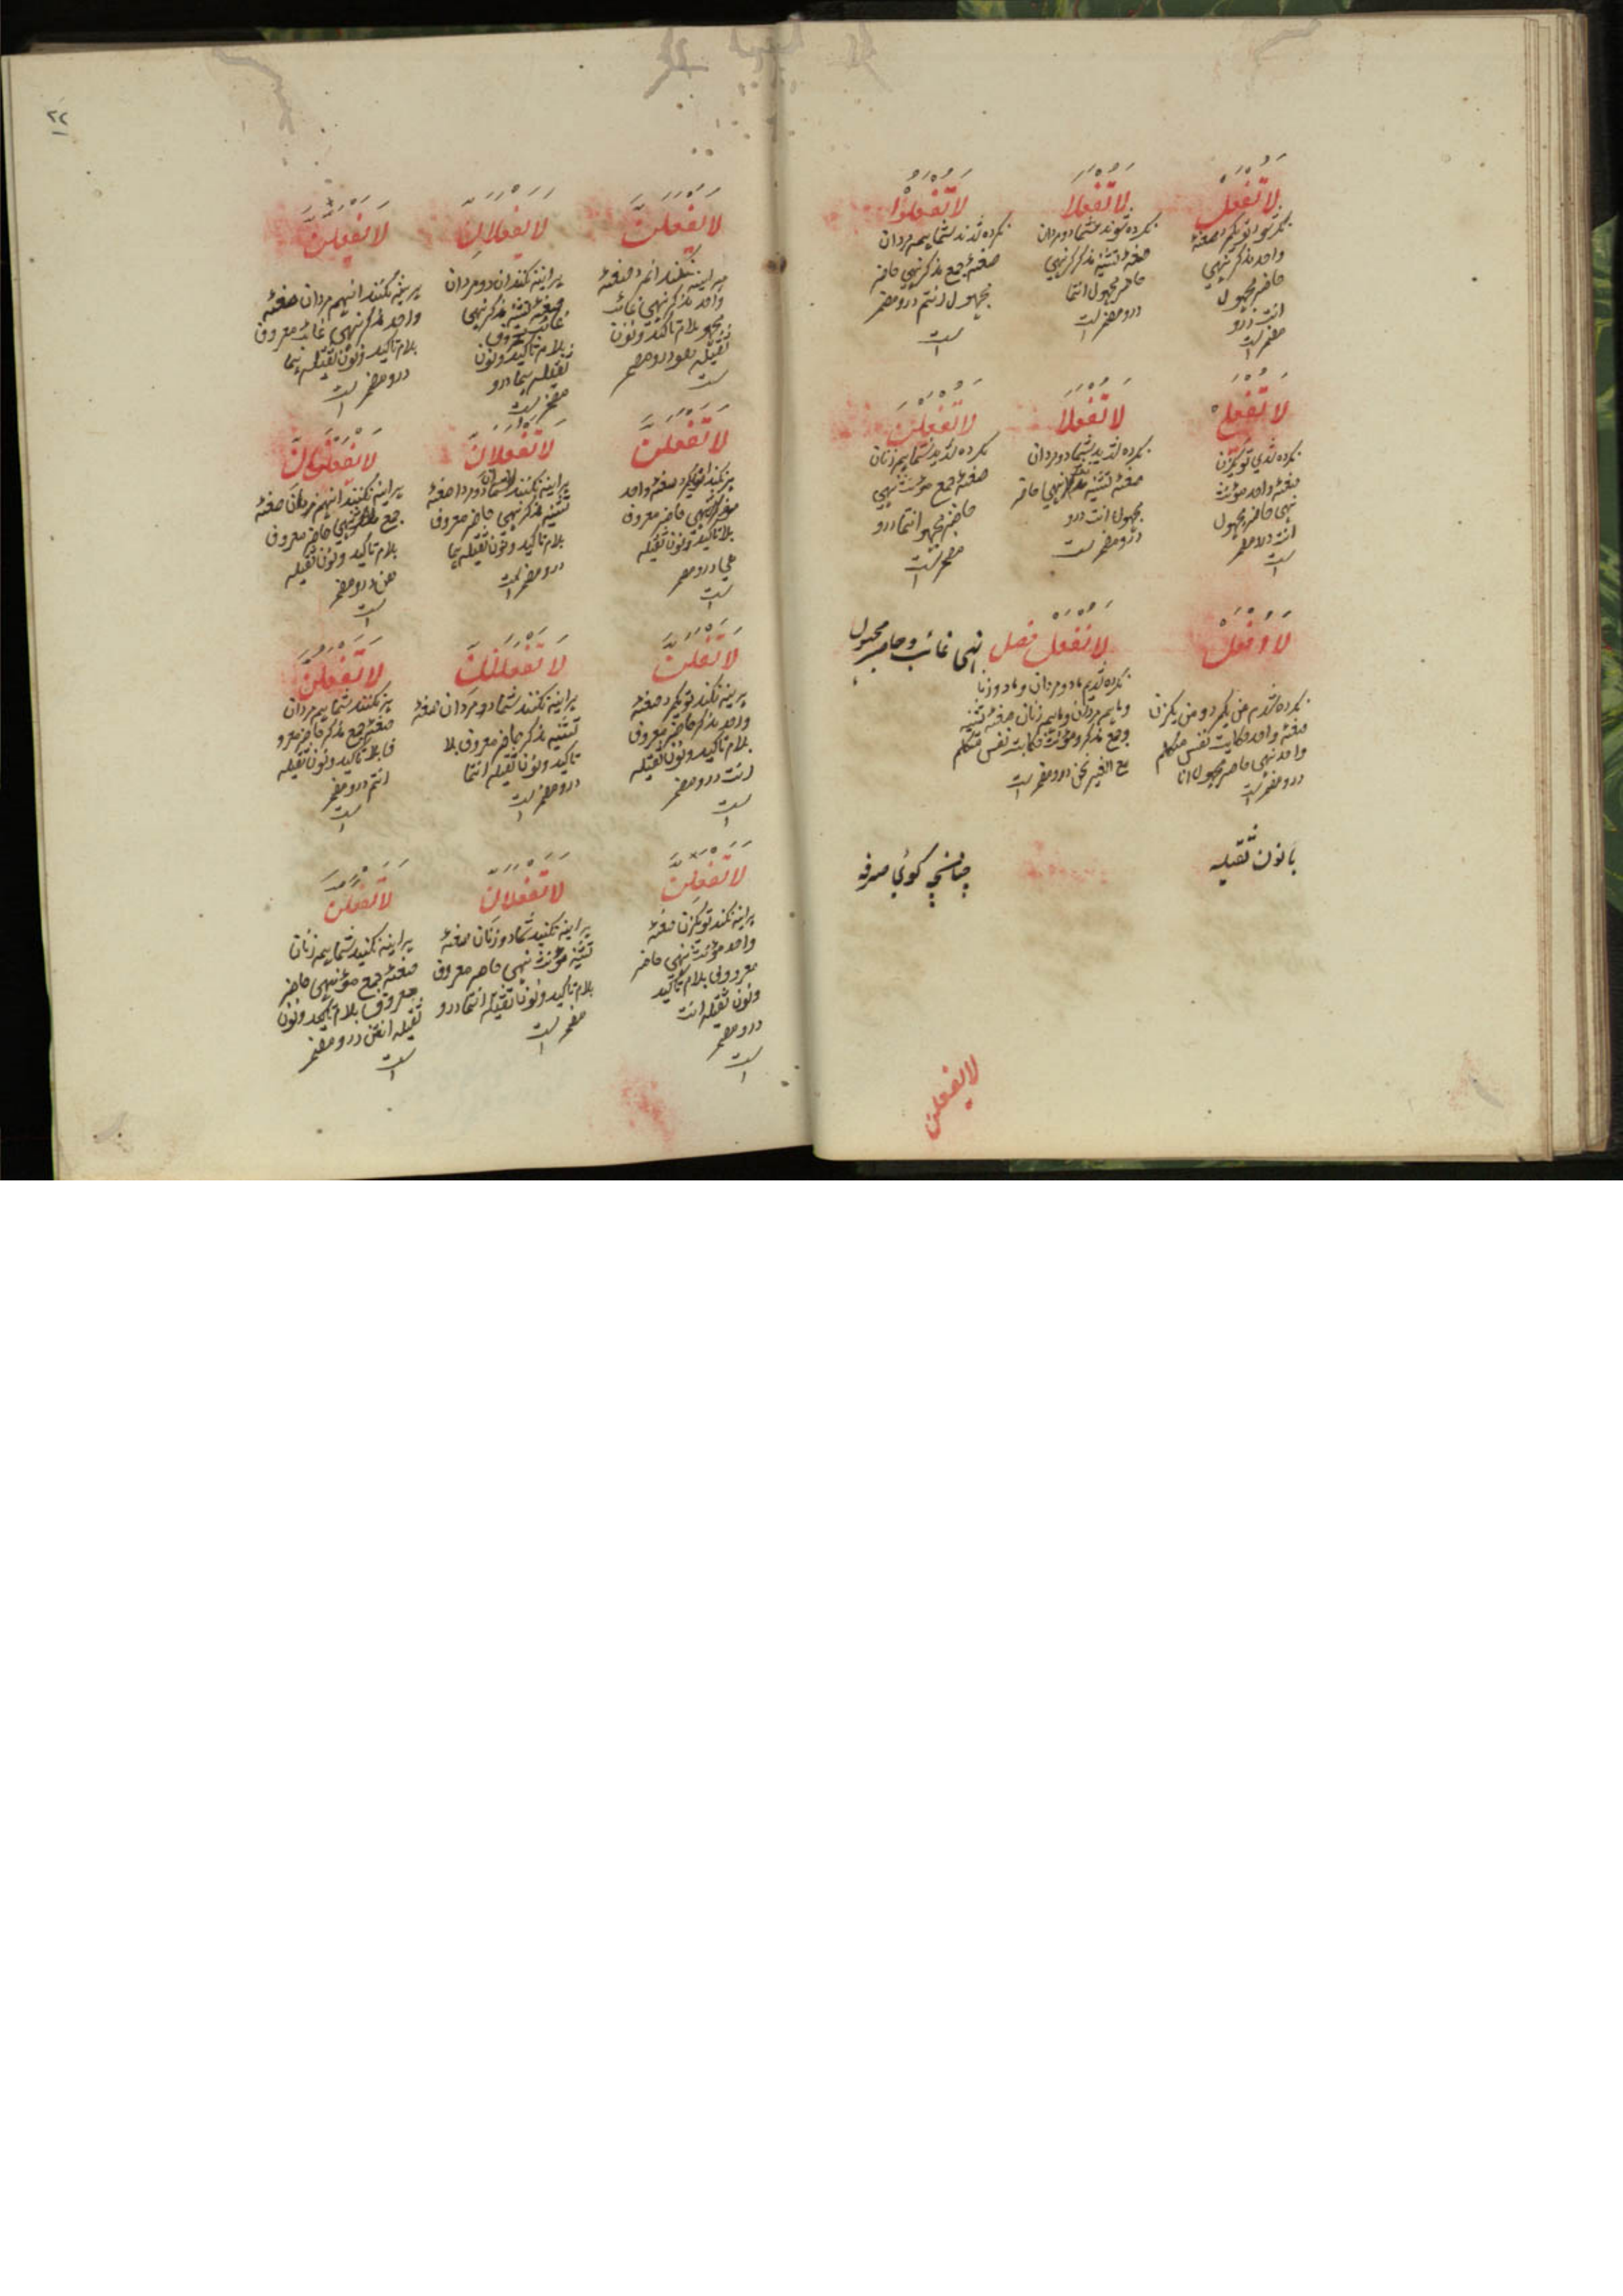 لا تفعل
نکرده شوی تو یکمرد صغئه
واحد مذکر نهی
حاضر مجهول
انت درو
مضمر است
لا تفعلا
نکرده شوند شما دو مردان
صغئه تثنیه مذکر نهی
حاضر مجهول انتما
درو مضمر است
لا تفعلوا
نکرده شدند شما همه مردان
صغئه جمع مذکر نهی حاضر
مجهول انتم درو مضمر
است
لا تفعلی
نکرده شدی تو یکزن
صغئه واحد مؤنث
نهی حاضر مجهول
انت درو مضمر
است
لا تفعلا
نکرده شدید شما دو مردان
صغئه تثنیه نهی حاضر
مجهول انت درو
درو مضمر است
لا تفعلن
نکرده شدید شما همه زنان
صغئه جمع مؤنث نهی
حاضر مجهو انتما درو
مضمر است
لا افعل
نکرده شدم من یکمرد و من یکزن
صغئه واحد حکایت نفس متکلم
واحد نهی حاضر مجهول انا
درو مضمر است
لا نفعل فصل نهی غائب و حاضر مجهول
نکرده شدیم ما دو مردان و ما دو زنا
و ما همه مردان و ما همه زنان صغئه تثنیه
و جمع مذکر و مؤنث حکایت نفس متکلم
مع الغیر نحن درو مضمر است
با نون ثقیله
چنانچه کوئی صرفه
لا یفعلن
۲۲
لا یفعلن
هر اینه نکند انمرد صغئه
واحد مذکر نهی غائب
مجهو بلام تاکید و نون
ثقیله هو درو مضمر
است
لا یفعلان
هر اینه نکند ان دو مردان
صغئه تثنیه مذکر نهی
غائب معروف
بلام تاکید و نون
ثقیله هما درو
مضمر است
لا یفعلن
نکنند انهم مردان صغئه
واحد مذکر نهی غائب معروف
بلام تاکید و نون ثقیله هما
درو مضمر است
لا تفعلن
صغئه واحد
نهی حاضر معروف
بلا تاکید و نون ثقیله
هی درو مضمر
است
لا تفعلان
هر اینه نکنند شما دو مردا صغئه
تثنیه مذکر نهی حاضر معروف
بلام تاکید و نون ثقیله هما
درو مضمر است
لا یفعلنان
هر اینه نکنند انهم مردان صغئه
جمع نهی حاضر معروف
بلام تاکید و نون ثقیله
هن درو مضمر
است
لا تفعلن
هر اینه نکند تو یکمرد صغئه
واحد مذکر حاضر معروف
بلام تاکید و نون ثقیله
انت درو مضمر
است
لا تفعلنان
هر اینه نکنند شما دو مردان صغئه
تثنیه مذکر حاضر معروف بلا
تاکید و نون ثقیله انتما
درو مضمر است
لا تفعلن
نکنند شما همه مردان
صغئه جمع مذکر حاضر معرو
ف بلا تاکید و نون ثقیله
انتم درو مضمر
است
لا تفعلن
هر اینه نکند تو یکزن صغئه
واحد مؤنث نهی حاضر
بلام تاکید
و نون ثقیله انت
درو مضمر
است
لا تفعلان
هر اینه نکنید شما دو زنان صغئه
تثنیه مؤنث نهی حاضر معروف
بلام تاکید و نون ثقیله انتما درو
مضمر است
لا تفعلن
هر اینه نکنید شما همه زنان
صغئه جمع مؤ نهی حاضر
معروف بلام تاکید و نون
ثقیله انتن درو مضمر
است